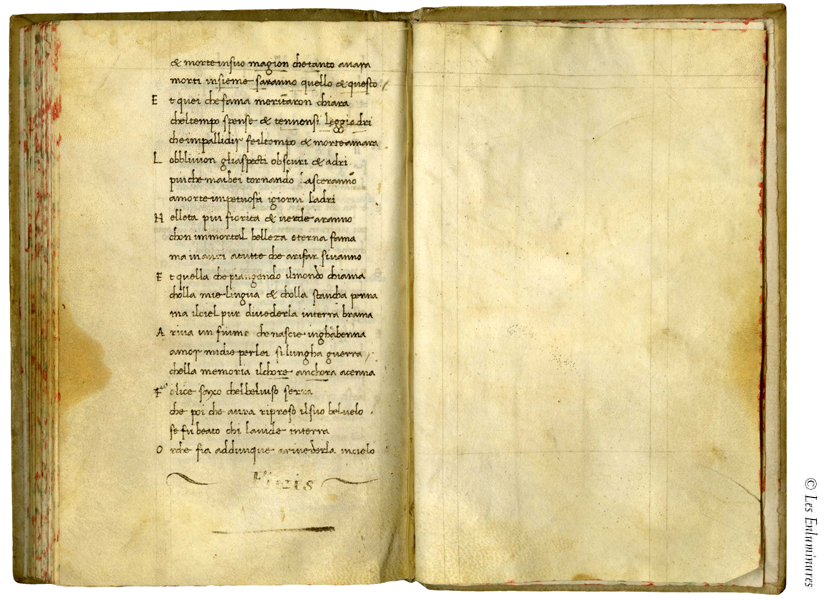 & morte insuo magion che tanto auara
morti insieme saranno quello & questo
E t quei che fama meritaron chiara
chel tempo spense & tennensi leggiadri
che impallidir fe il tempo & morte amara
L obbliuion gliaspecti obscuri & adri
piu che mai bei tornando lasceranno
a morte impetuosi igiorni ladri
N elleta piu fiorita & uerde aranno
chon immortal belleza eterna fama
ma inanzi atutte che arifar siuanno
E t quella che piangendo ilmondo chiama
cholla mie lingua & cholla stancha penna
ma ilciel pur diuederla interra brama
A riua un fiume che nascie inghabenna
amor midie perlei si lungha guerra
chella memoria ilchore anchora acenna
F elice saxo chelbeluiso serra
che poi che aura ripreso ilsuo beluelo
se fu beato chi lauide interra
O rche fia addunque ariuederla incielo
Finis
© Les Enluminures